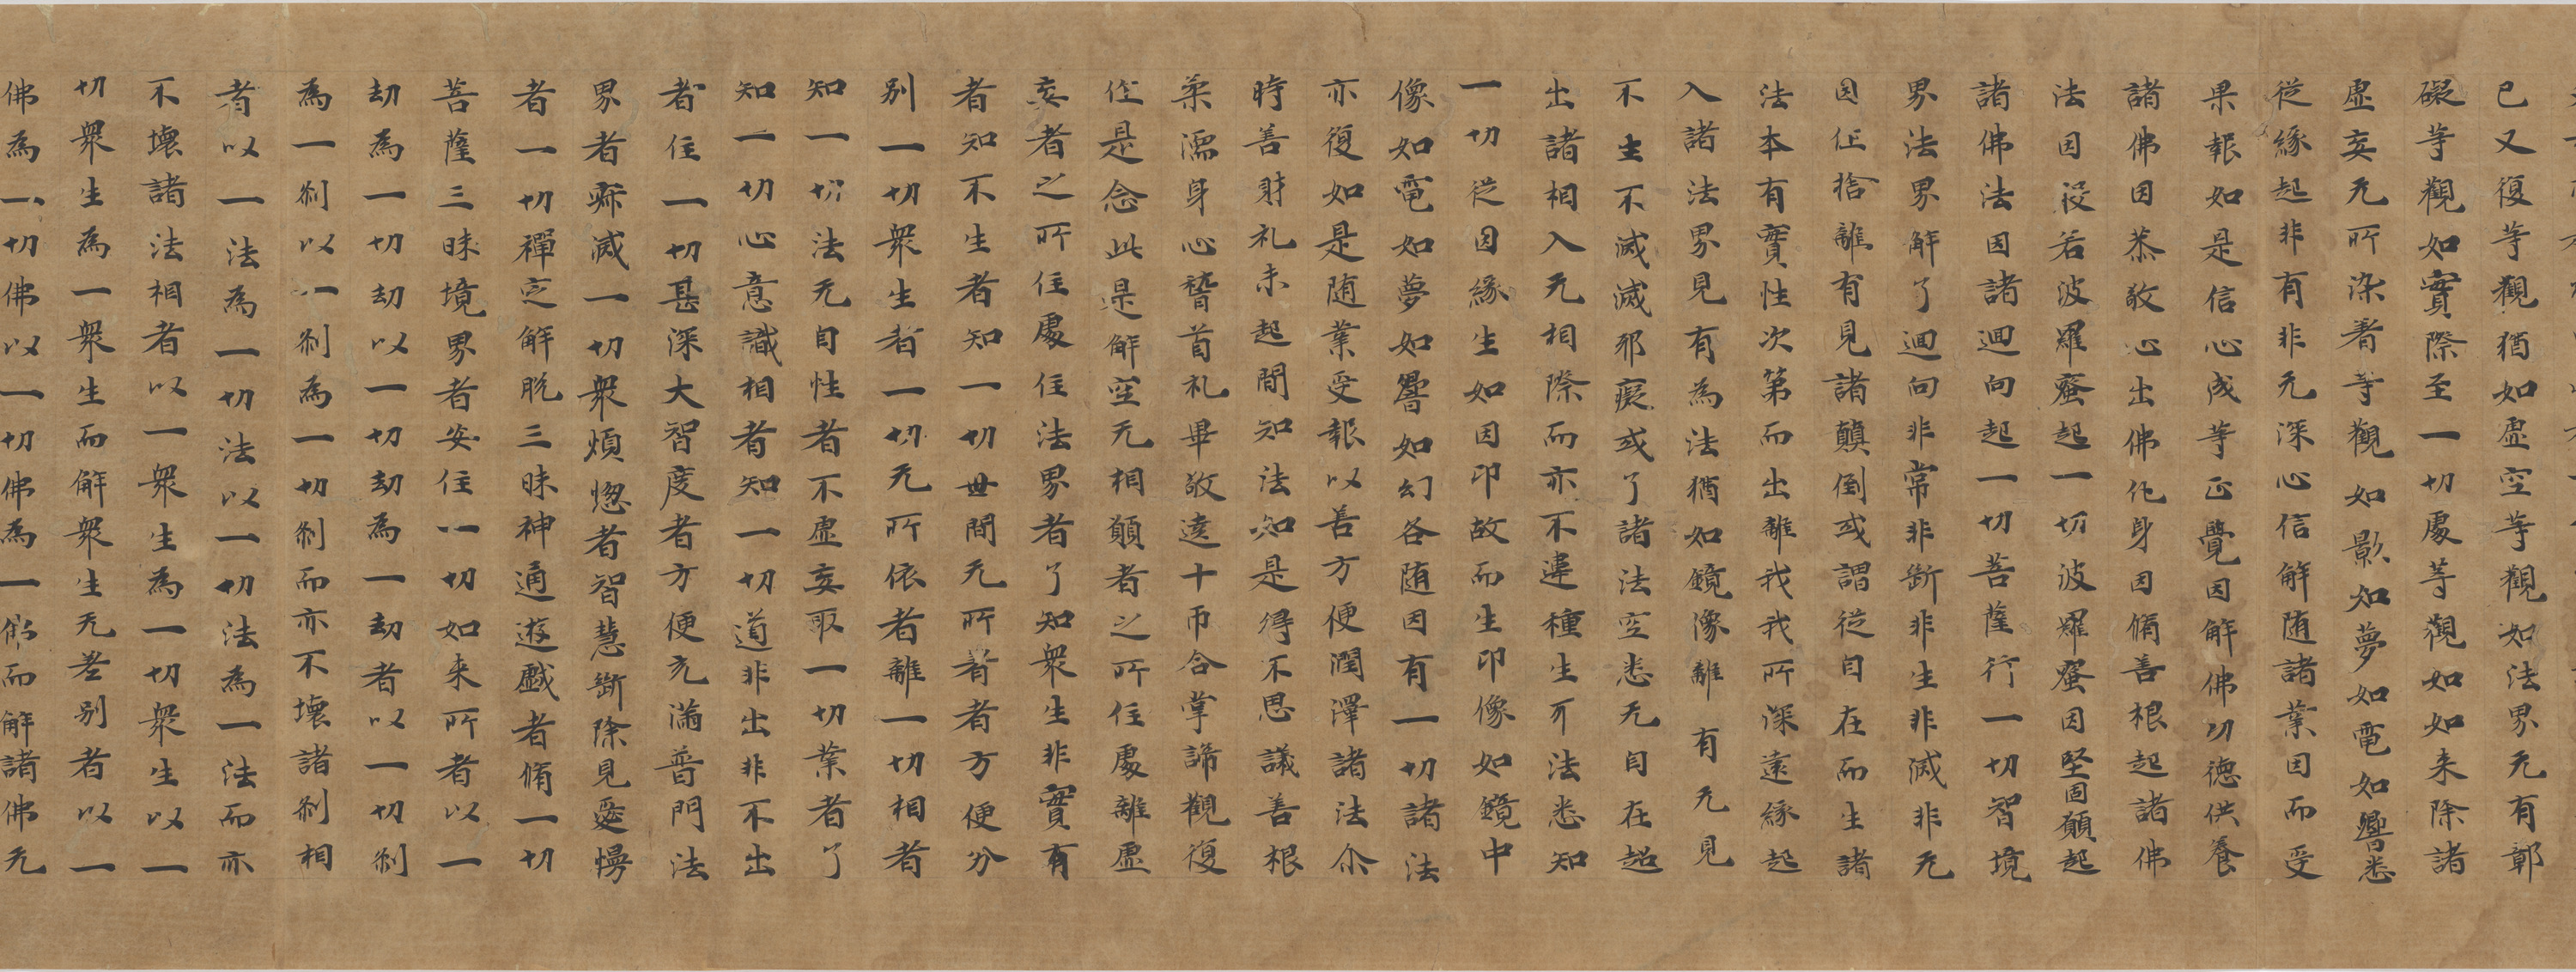 已又復等觀猶如虛空等觀如法界无有鄣
礙等觀如實際至一切處等觀如如来除諸
虛妄无所染著等觀如影如夢如電如響悉
從緣起非有非无深心信解随諸業因而受
果報如是信心成等正覺因解佛功德供養
諸佛因恭敬心出佛化身因脩善根起諸佛
法因從若波羅蜜起一切波羅蜜因堅固願起
諸佛法因諸迴向起一切菩薩行一切智境
界法界解了迴向非常非斷非生非滅非无
因作捨離有見諸顛倒或謂從自在而生諸
法本有實性次第而出離我我所深遠緣起
入諸法界見有為法猶如鏡像離有无見
不生不滅滅邪癡或了諸法空悉无自在超
出諸相入无相際而亦不違種生牙法悉知
一切從因緣生如因印故而生印像如鏡中
像如電如夢如響如幻各随因有一切諸法
亦復如是随業受報以善方便潤澤諸法尒
時善財礼未起間知法知是得不思議善根
柔濡身心稽首礼畢敬遶十帀合掌諦觀復
作是念此是解空无相願者之所住處離虛
妄者之所住處住法界者了知眾生非實有
者知不生者知一切世間无所著者方便分
别一切眾生者一切无所依者離一切相者
知一切法无自性者不虛妄取一切業者了
知一切心意識相者知一切道非出非不出
者住一切甚深大智度者方便充滿普門法
界者寂滅一切眾煩惚者智慧斷除見愛慢
者一切禪定解脫三昧神通遊戲者脩一切
菩薩三昧境界者安住一切如来所者以一
劫為一切劫以一切劫為一劫者以一切刹
為一刹以一刹為一切刹而亦不壞諸刹相
者以一法為一切法以一切法為一法而亦
不壞諸法相者以一眾生為一切眾生以一
切眾生為一眾生而解眾生无差别者以一
佛為一切佛以一切佛為一佛而解諸佛无